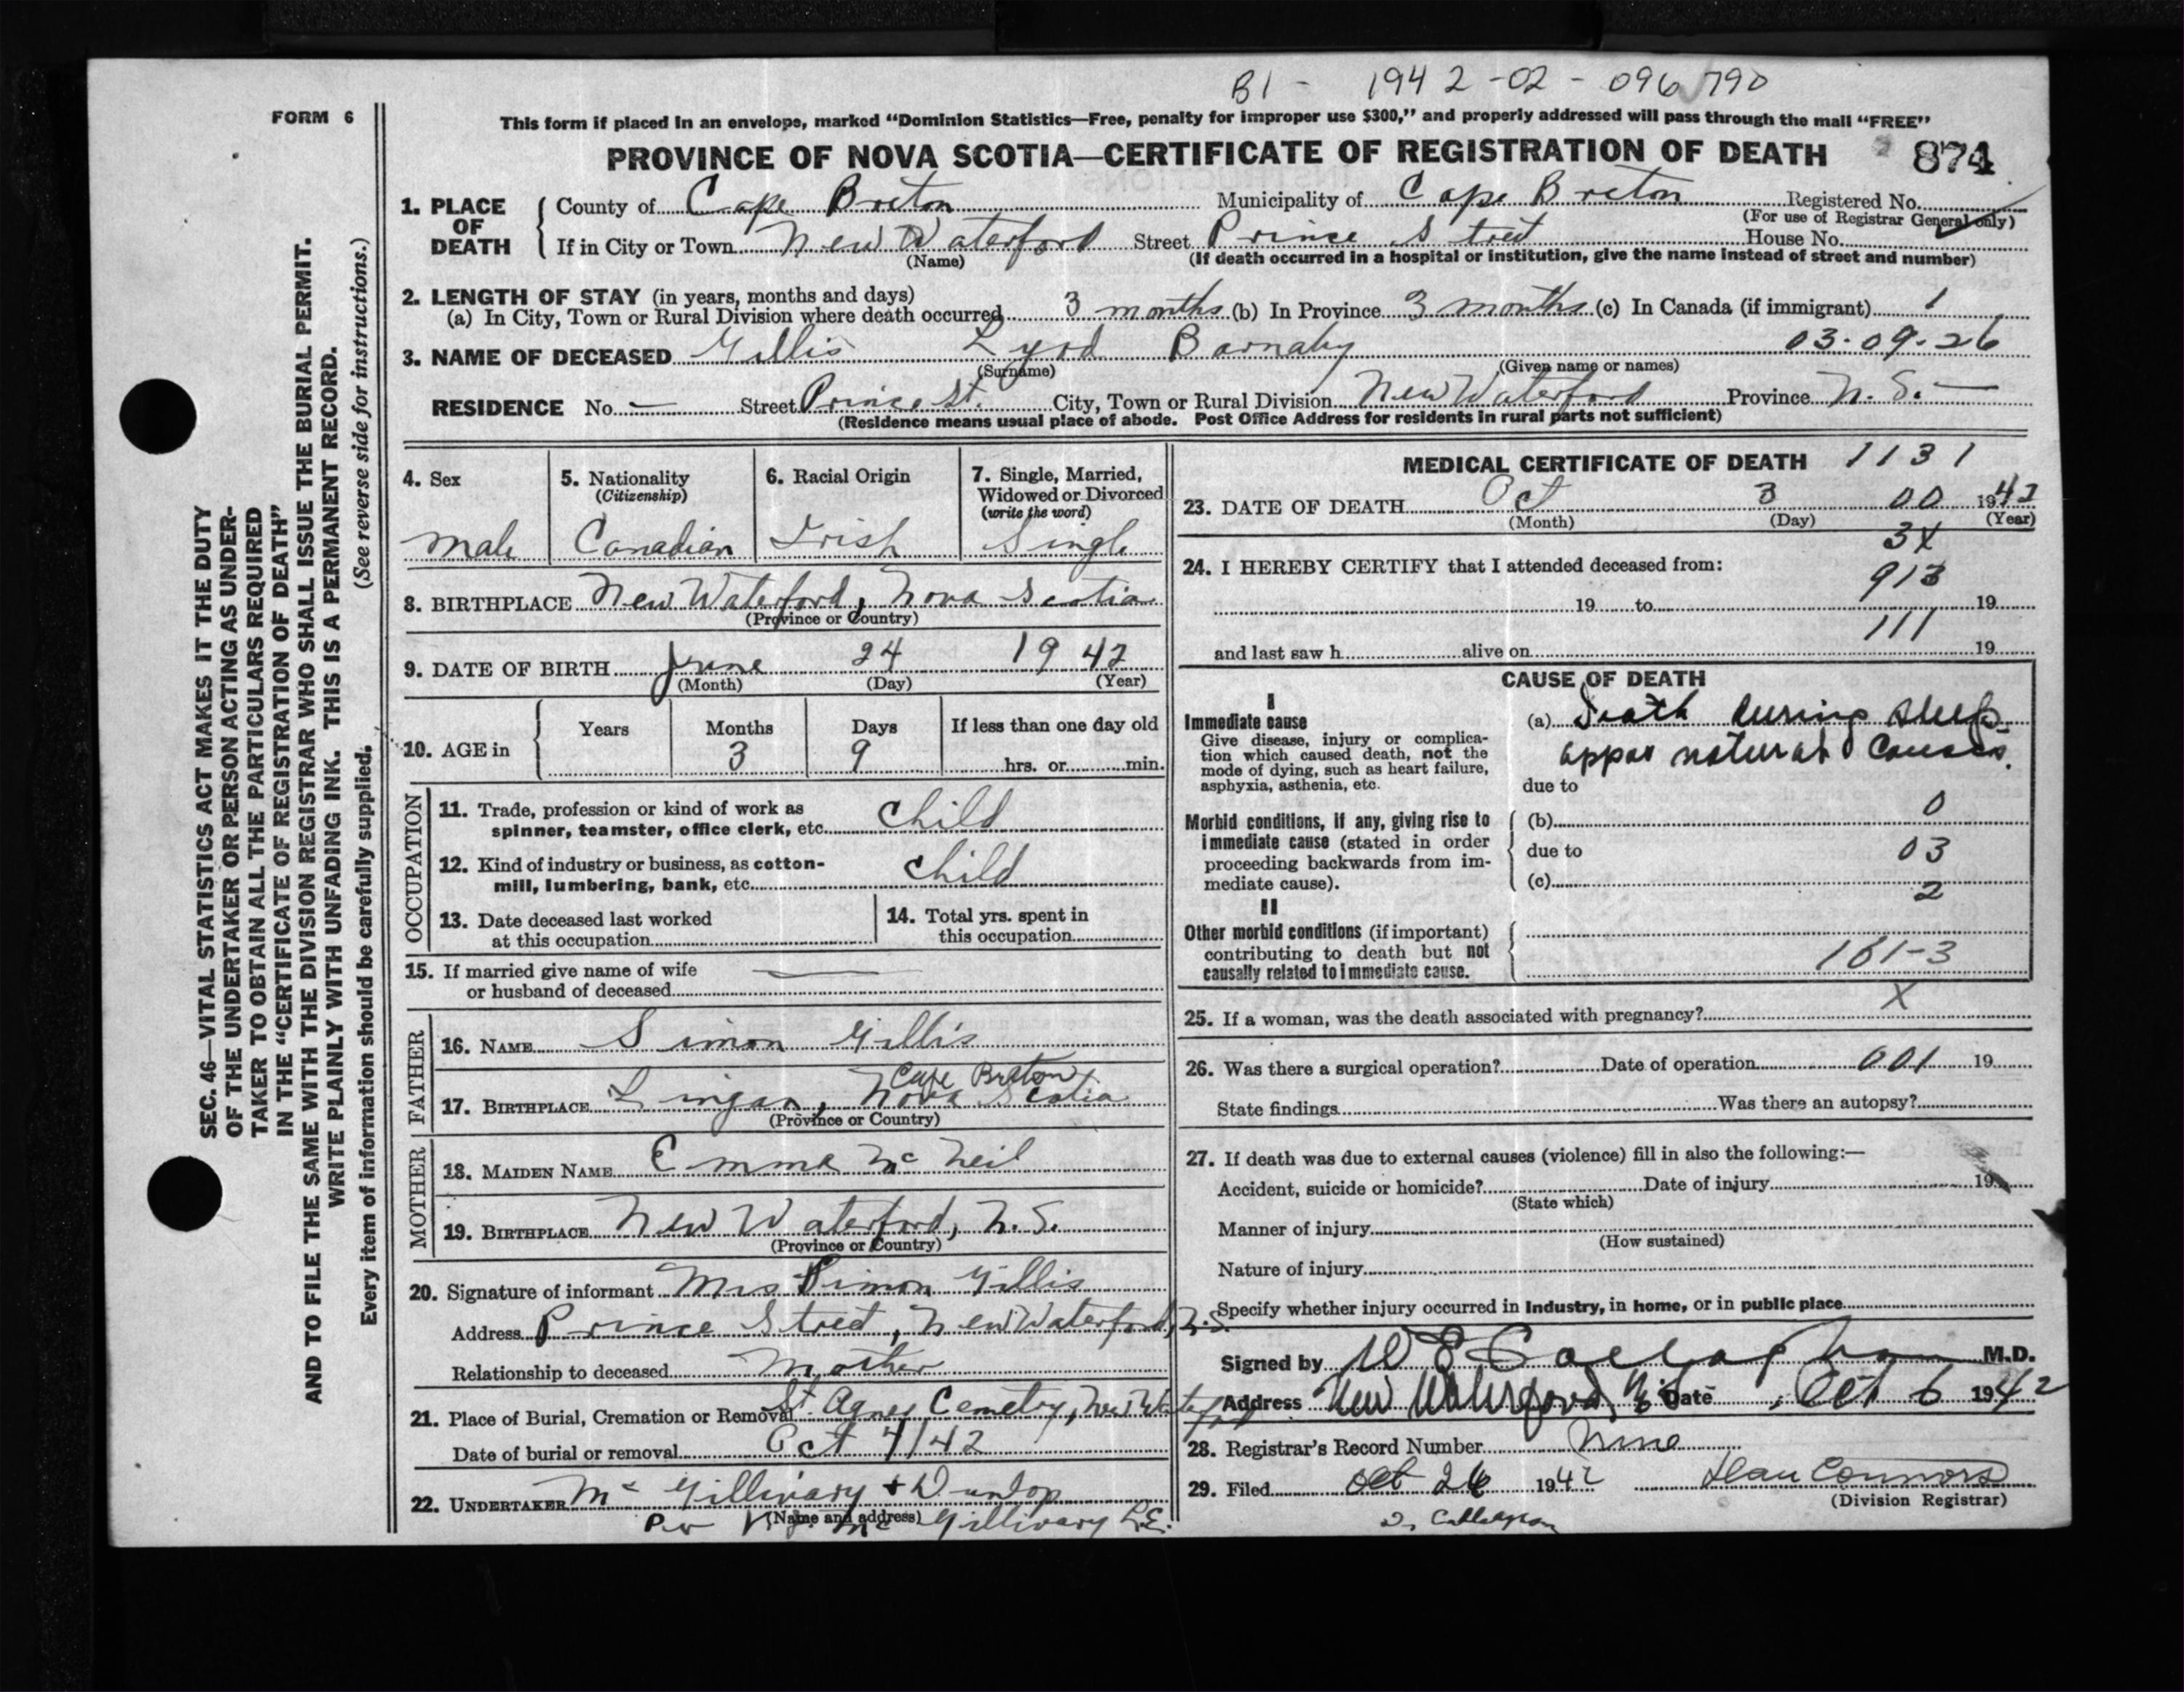 B1 - 1942-02-096790
FORM 6
This form if placed in an envelope, marked "Dominion Statistics—Free, penalty for improper use $300," and properly addressed will pass through the mail "FREE"
PROVINCE OF NOVA SCOTIA—CERTIFICATE OF REGISTRATION OF DEATH 874
SEC. 46—VITAL STATISTICS ACT MAKES IT THE DUTY
OF THE UNDERTAKER OR PERSON ACTING AS UNDER-
TAKER TO OBTAIN ALL THE PARTICULARS REQUIRED
IN THE "CERTIFICATE OF REGISTRATION OF DEATH"
AND TO FILE THE SAME WITH THE DIVISION REGISTRAR WHO SHALL ISSUE THE BURIAL PERMIT.
WRITE PLAINLY WITH UNFADING INK. THIS IS A PERMANENT RECORD.
Every item of information should be carefully supplied. (See reverse side for instructions.)
1. PLACE OF DEATH County of Cape Breton Municipality of Cape Breton Registered No.
(For use of Registrar General only)
If in City or Town New Waterford Street Prince Street House No.
(Name) (If death occurred in a hospital or institution, give the name instead of street and number)
2. LENGTH OF STAY (in years, months and days)
(a) In City, Town or Rural Division where death occurred 3 months (b) In Province 3 months (c) In Canada (if immigrant) 1
3. NAME OF DECEASED Gillis Lyod Barnaby 03-09-26
(Surname) (Given name or names)
RESIDENCE No. — Street Prince St. City, Town or Rural Division New Waterford Province N.S. —
(Residence means usual place of abode. Post Office Address for residents in rural parts not sufficient)
4. Sex 5. Nationality 6. Racial Origin 7. Single, Married,
(Citizenship) Widowed or Divorced
(write the word)
Male Canadian Irish Single
8. BIRTHPLACE New Waterford, Nova Scotia
(Province or Country)
9. DATE OF BIRTH June 24 1942
(Month) (Day) (Year)
10. AGE in Years Months Days If less than one day old
3 9 hrs. or min.
OCCUPATION
11. Trade, profession or kind of work as
spinner, teamster, office clerk, etc. Child
12. Kind of industry or business, as cotton-
mill, lumbering, bank, etc. child
13. Date deceased last worked
at this occupation
14. Total yrs. spent in
this occupation
15. If married give name of wife
or husband of deceased —
FATHER
16. NAME Simon Gillis
17. BIRTHPLACE Lingan, Cape Breton Nova Scotia
(Province or Country)
MOTHER
18. MAIDEN NAME Emma McNeil
19. BIRTHPLACE New Waterford, N.S.
(Province or Country)
20. Signature of informant Mrs Simon Gillis
Address Prince Street, New Waterford, N.S.
Relationship to deceased Mother
21. Place of Burial, Cremation or Removal St. Agnes Cemetry, New Waterford
Date of burial or removal Oct 4/42
22. UNDERTAKER McGillivary + Dunlop
(Name and address)
Per McGillivary L.E.
MEDICAL CERTIFICATE OF DEATH 1131
23. DATE OF DEATH Oct 3 00 1942
(Month) (Day) (Year)
3X
24. I HEREBY CERTIFY that I attended deceased from:
913
19 to 19
111
and last saw h alive on 19
CAUSE OF DEATH
I
Immediate cause
Give disease, injury or complica-
tion which caused death, not the
mode of dying, such as heart failure,
asphyxia, asthenia, etc.
(a) Death during sleep
appar natural causes.
due to
Morbid conditions, if any, giving rise to
immediate cause (stated in order
proceeding backwards from im-
mediate cause).
(b) 0
due to 03
(c) 2
II
Other morbid conditions (if important)
contributing to death but not
causally related to immediate cause.
161-3
25. If a woman, was the death associated with pregnancy? X
26. Was there a surgical operation? Date of operation 001 19
State findings Was there an autopsy?
27. If death was due to external causes (violence) fill in also the following:—
Accident, suicide or homicide? Date of injury 19
(State which)
Manner of injury
(How sustained)
Nature of injury
Specify whether injury occurred in Industry, in home, or in public place
Signed by W E Callaghan M.D.
Address New Waterford, N.S. Date Oct 6 1942
28. Registrar's Record Number Nine
29. Filed Oct 26 1942 Connors
(Division Registrar)